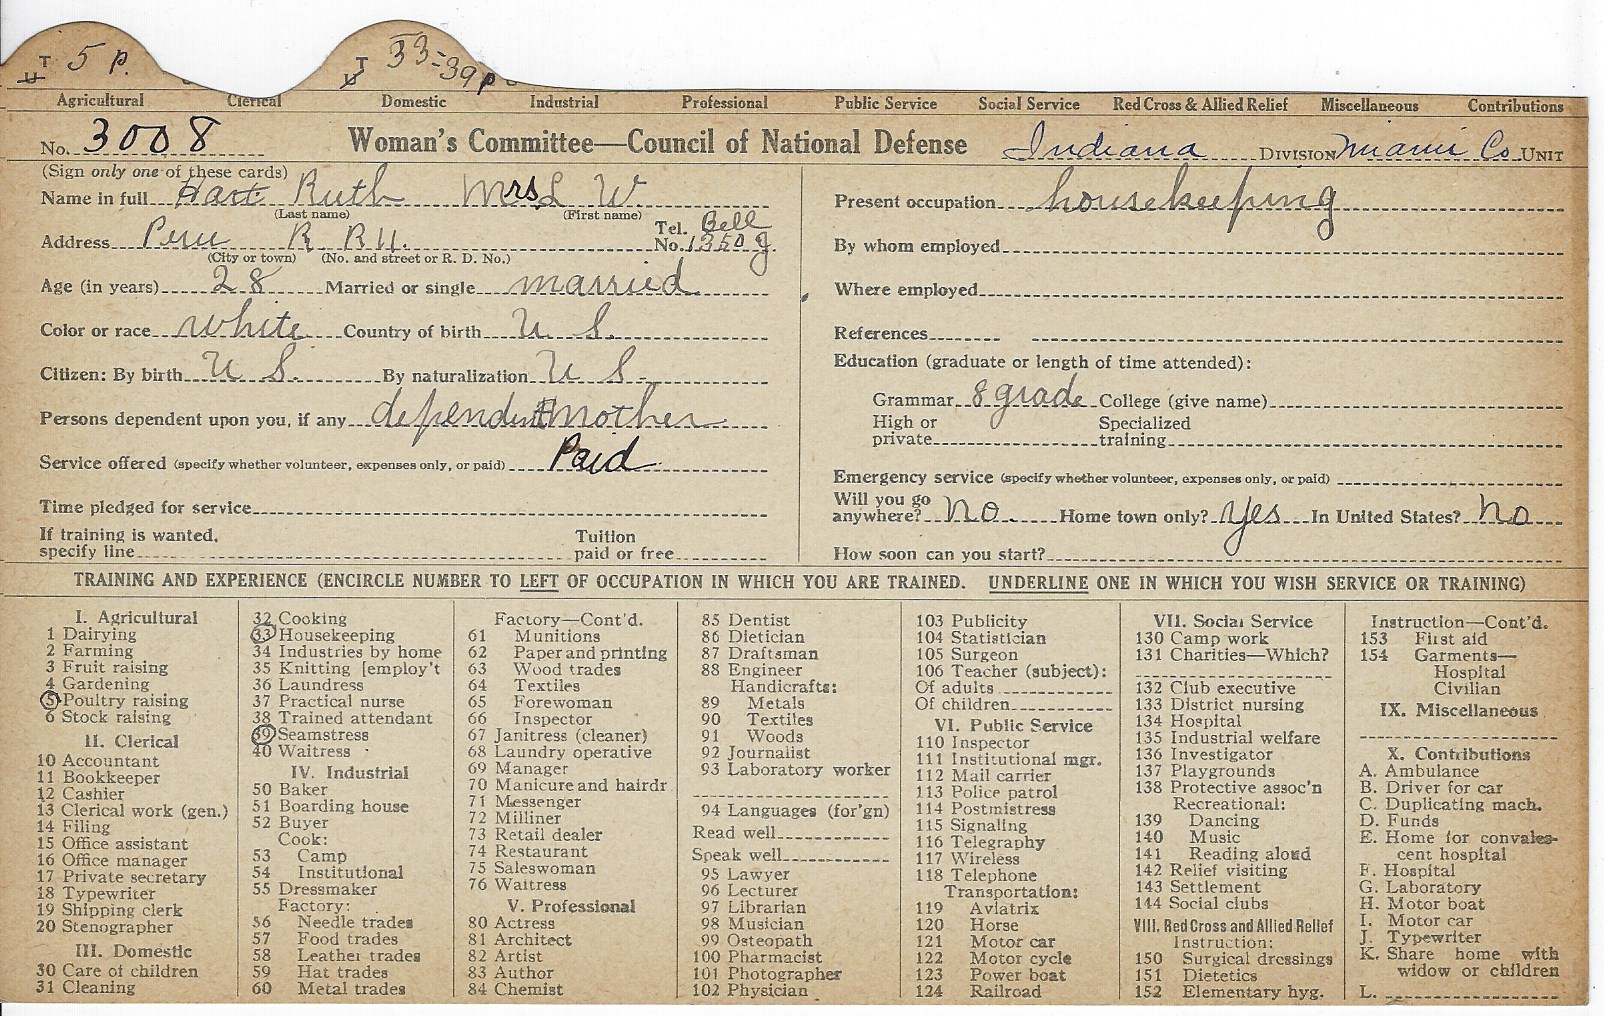 T 5 P. T 33-39 P
U U
Agricultural Clerical Domestic Industrial Professional Public Service Social Service Red Cross & Allied Relief Miscellaneous Contributions
No. 3008 Woman's Committee—Council of National Defense Indiana DIVISION Miami Co. UNIT
(Sign only one of these cards)
Name in full Hart Ruth Mrs L W
(Last name) (First name)
Address Peru R. R 11. Tel. No. Bell 1350 J.
(City or town) (No. and street or R. D. No.)
Age (in years) 28 Married or single married
Color or race white Country of birth U S.
Citizen: By birth U S. By naturalization U S.
Persons dependent upon you, if any dependent mother
Service offered (specify whether volunteer, expenses only, or paid) Paid
Time pledged for service
If training is wanted, specify line Tuition paid or free
Present occupation housekeeping
By whom employed
Where employed
References
Education (graduate or length of time attended):
Grammar 8 grade College (give name)
High or private Specialized training
Emergency service (specify whether volunteer, expenses only, or paid)
Will you go anywhere? No. Home town only? Yes In United States? No
How soon can you start?
TRAINING AND EXPERIENCE (ENCIRCLE NUMBER TO LEFT OF OCCUPATION IN WHICH YOU ARE TRAINED. UNDERLINE ONE IN WHICH YOU WISH SERVICE OR TRAINING)
I. Agricultural
1 Dairying
2 Farming
3 Fruit raising
4 Gardening
5 Poultry raising
6 Stock raising
II. Clerical
10 Accountant
11 Bookkeeper
12 Cashier
13 Clerical work (gen.)
14 Filing
15 Office assistant
16 Office manager
17 Private secretary
18 Typewriter
19 Shipping clerk
20 Stenographer
III. Domestic
30 Care of children
31 Cleaning
32 Cooking
33 Housekeeping
34 Industries by home
35 Knitting [employ't
36 Laundress
37 Practical nurse
38 Trained attendant
39 Seamstress
40 Waitress
IV. Industrial
50 Baker
51 Boarding house
52 Buyer
Cook:
53 Camp
54 Institutional
55 Dressmaker
Factory:
56 Needle trades
57 Food trades
58 Leather trades
59 Hat trades
60 Metal trades
Factory—Cont'd.
61 Munitions
62 Paper and printing
63 Wood trades
64 Textiles
65 Forewoman
66 Inspector
67 Janitress (cleaner)
68 Laundry operative
69 Manager
70 Manicure and hairdr
71 Messenger
72 Milliner
73 Retail dealer
74 Restaurant
75 Saleswoman
76 Waitress
V. Professional
80 Actress
81 Architect
82 Artist
83 Author
84 Chemist
85 Dentist
86 Dietician
87 Draftsman
88 Engineer
Handicrafts:
89 Metals
90 Textiles
91 Woods
92 Journalist
93 Laboratory worker
94 Languages (for'gn)
Read well
Speak well
95 Lawyer
96 Lecturer
97 Librarian
98 Musician
99 Osteopath
100 Pharmacist
101 Photographer
102 Physician
103 Publicity
104 Statistician
105 Surgeon
106 Teacher (subject):
Of adults
Of children
VI. Public Service
110 Inspector
111 Institutional mgr.
112 Mail carrier
113 Police patrol
114 Postmistress
115 Signaling
116 Telegraphy
117 Wireless
118 Telephone
Transportation:
119 Aviatrix
120 Horse
121 Motor car
122 Motor cycle
123 Power boat
124 Railroad
VII. Social Service
130 Camp work
131 Charities—Which?
132 Club executive
133 District nursing
134 Hospital
135 Industrial welfare
136 Investigator
137 Playgrounds
138 Protective assoc'n
Recreational:
139 Dancing
140 Music
141 Reading aloud
142 Relief visiting
143 Settlement
144 Social clubs
VIII. Red Cross and Allied Relief
Instruction:
150 Surgical dressings
151 Dietetics
152 Elementary hyg.
Instruction—Cont'd.
153 First aid
154 Garments—
Hospital
Civilian
IX. Miscellaneous
X. Contributions
A. Ambulance
B. Driver for car
C. Duplicating mach.
D. Funds
E. Home for convales-
cent hospital
F. Hospital
G. Laboratory
H. Motor boat
I. Motor car
J. Typewriter
K. Share home with
widow or children
L.